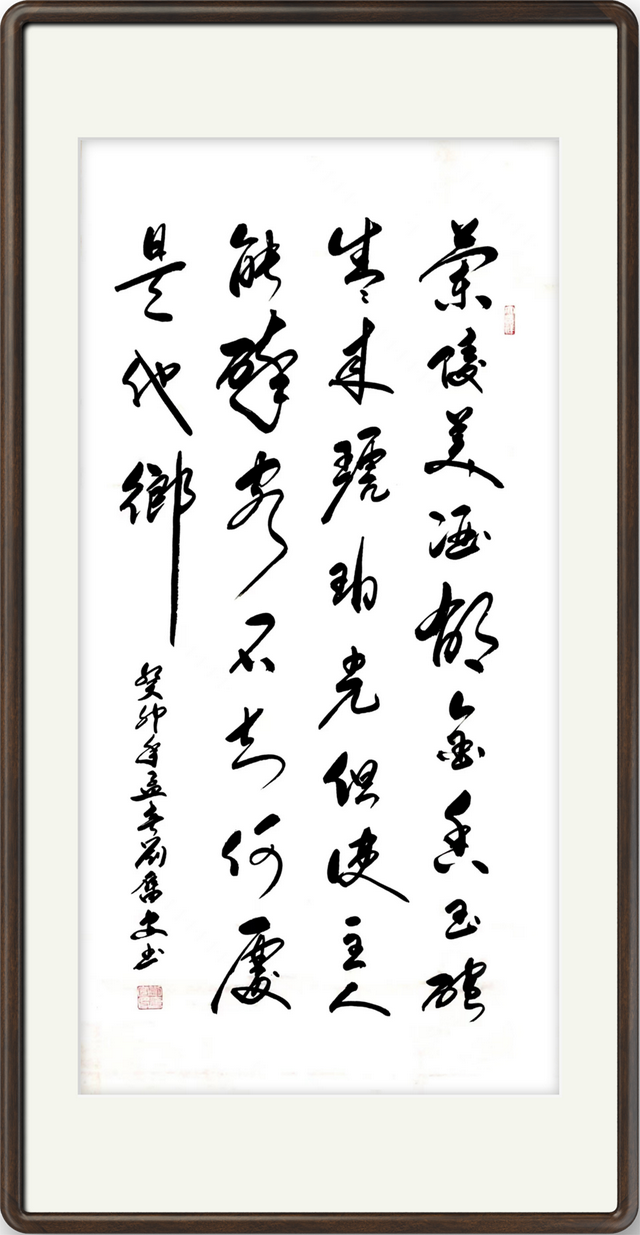 蘭陵美酒郁金香玉碗
盛来琥珀光但使主人
能醉客不知何處
是他鄉
癸卯年孟春劉书